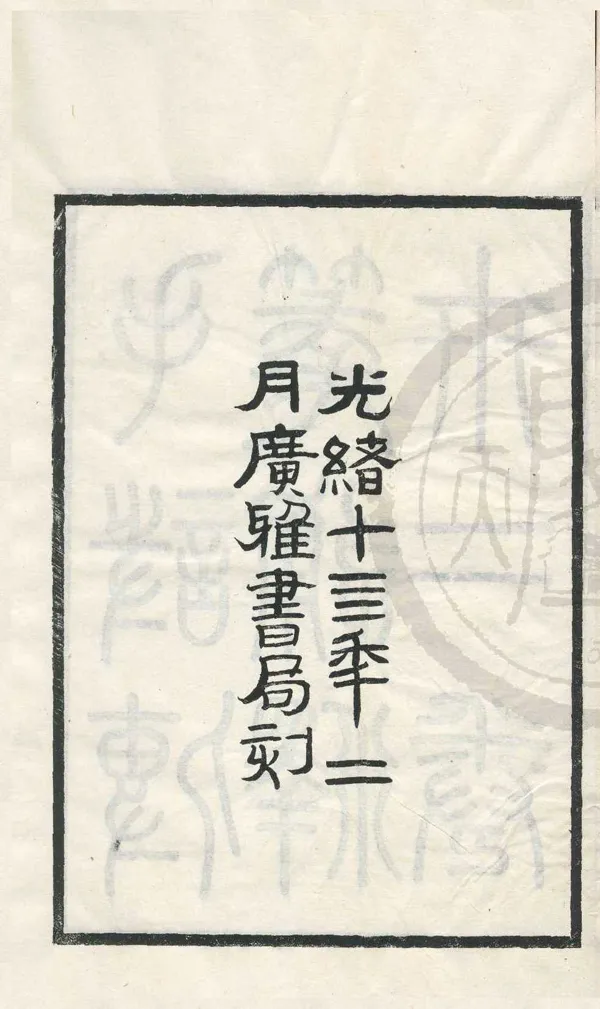 光緒十三秊二
月廣雅書局刻